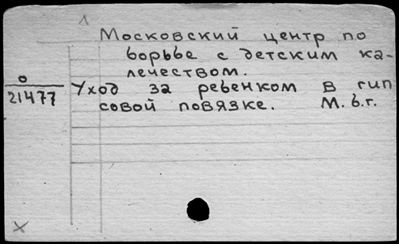 1
Московский центр по
борьбе с детским ка-
лечеством.
0
21477
Уход за ребенком в гип
совой повязке. М. б.г.
X